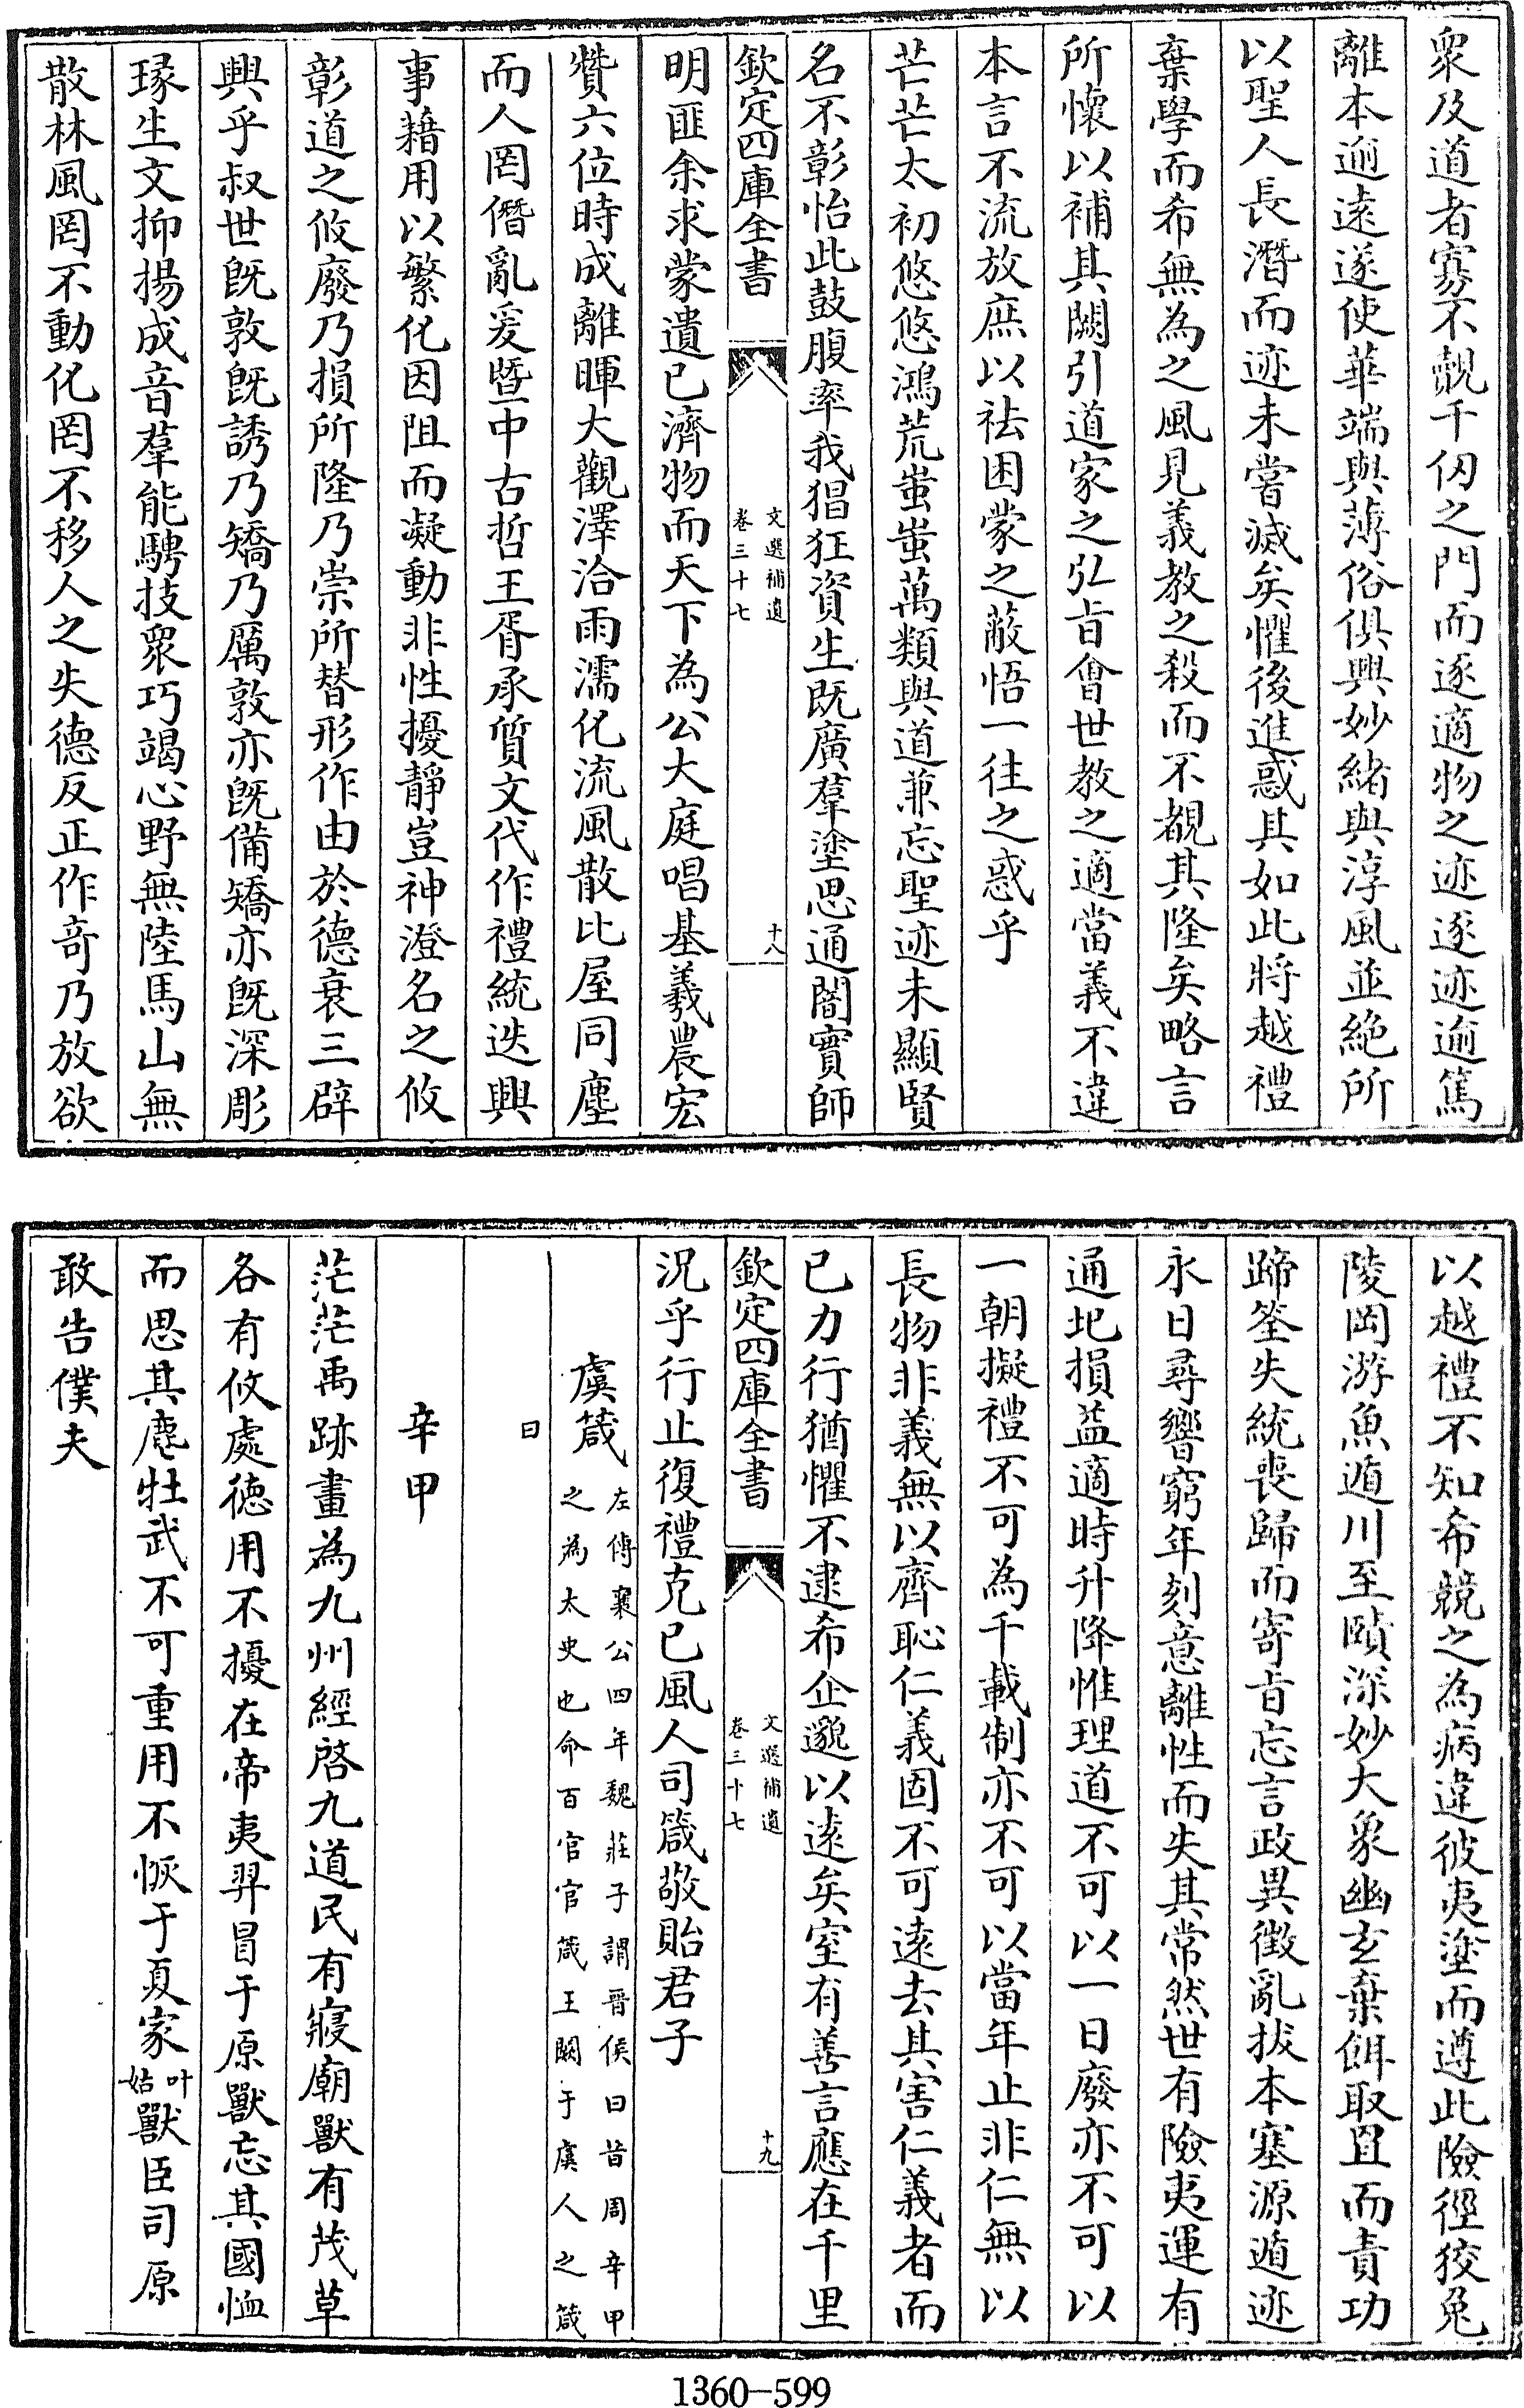 衆及道者寡不覩千仞之門而逐適物之迹逐迹逾篤
離本逾遠遂使華端與薄俗俱興妙緒與淳風並絶所
以聖人長潛而迹未嘗滅矣懼後進惑其如此將越禮
棄學而希無為之風見義教之殺而不覩其隆矣略言
所懷以補其闕引道家之弘旨會世教之適當義不違
本言不流放庶以祛困蒙之蔽悟一往之惑乎
芒芒太初悠悠鴻荒蚩蚩萬類與道兼忘聖迹未顯賢
名不彰怡此鼓腹率我猖狂資生既廣羣塗思通闇實師
欽定四庫全書
文選補遺
卷三十七
十八
明匪余求蒙遺已濟物而天下為公大庭唱基羲農宏
贊六位時成離暉大觀澤洽雨濡化流風散比屋同塵
而人罔僭亂爰暨中古哲王胥承質文代作禮統迭興
事藉用以繁化因阻而凝動非性擾靜豈神澄名之攸
彰道之攸廢乃損所隆乃崇所替形作由於德衰三辟
興乎叔世既敦既誘乃矯乃厲敦亦既備矯亦既深彫
琢生文抑揚成音羣能騁技衆巧竭心野無陸馬山無
散林風罔不動化罔不移人之失德反正作奇乃放欲
以越禮不知希競之為病違彼夷塗而遵此險徑狡兔
陵岡游魚遁川至賾深妙大象幽玄棄餌取罝而責功
蹄筌失統喪歸而寄旨忘言政異徵亂拔本塞源遁迹
永日尋響窮年刻意離性而失其常然世有險夷運有
通圯損益適時升降惟理道不可以一日廢亦不可以
一朝擬禮不可為千載制亦不可以當年止非仁無以
長物非義無以齊恥仁義固不可遠去其害仁義者而
已力行猶懼不逮希企邈以遠矣室有善言應在千里
欽定四庫全書
文選補遺
卷三十七
十九
況乎行止復禮克已風人司箴敬貽君子
虞箴
左傳襄公四年魏莊子謂晉侯曰昔周辛甲
之為太史也命百官官箴王闕于虞人之箴
曰
辛甲
茫茫禹跡畫為九州經啓九道民有寢廟獸有茂草
各有攸處徳用不擾在帝夷羿冒于原獸忘其國恤
而思其麀牡武不可重用不恢于夏家叶姑獸臣司原
敢告僕夫
1360-599